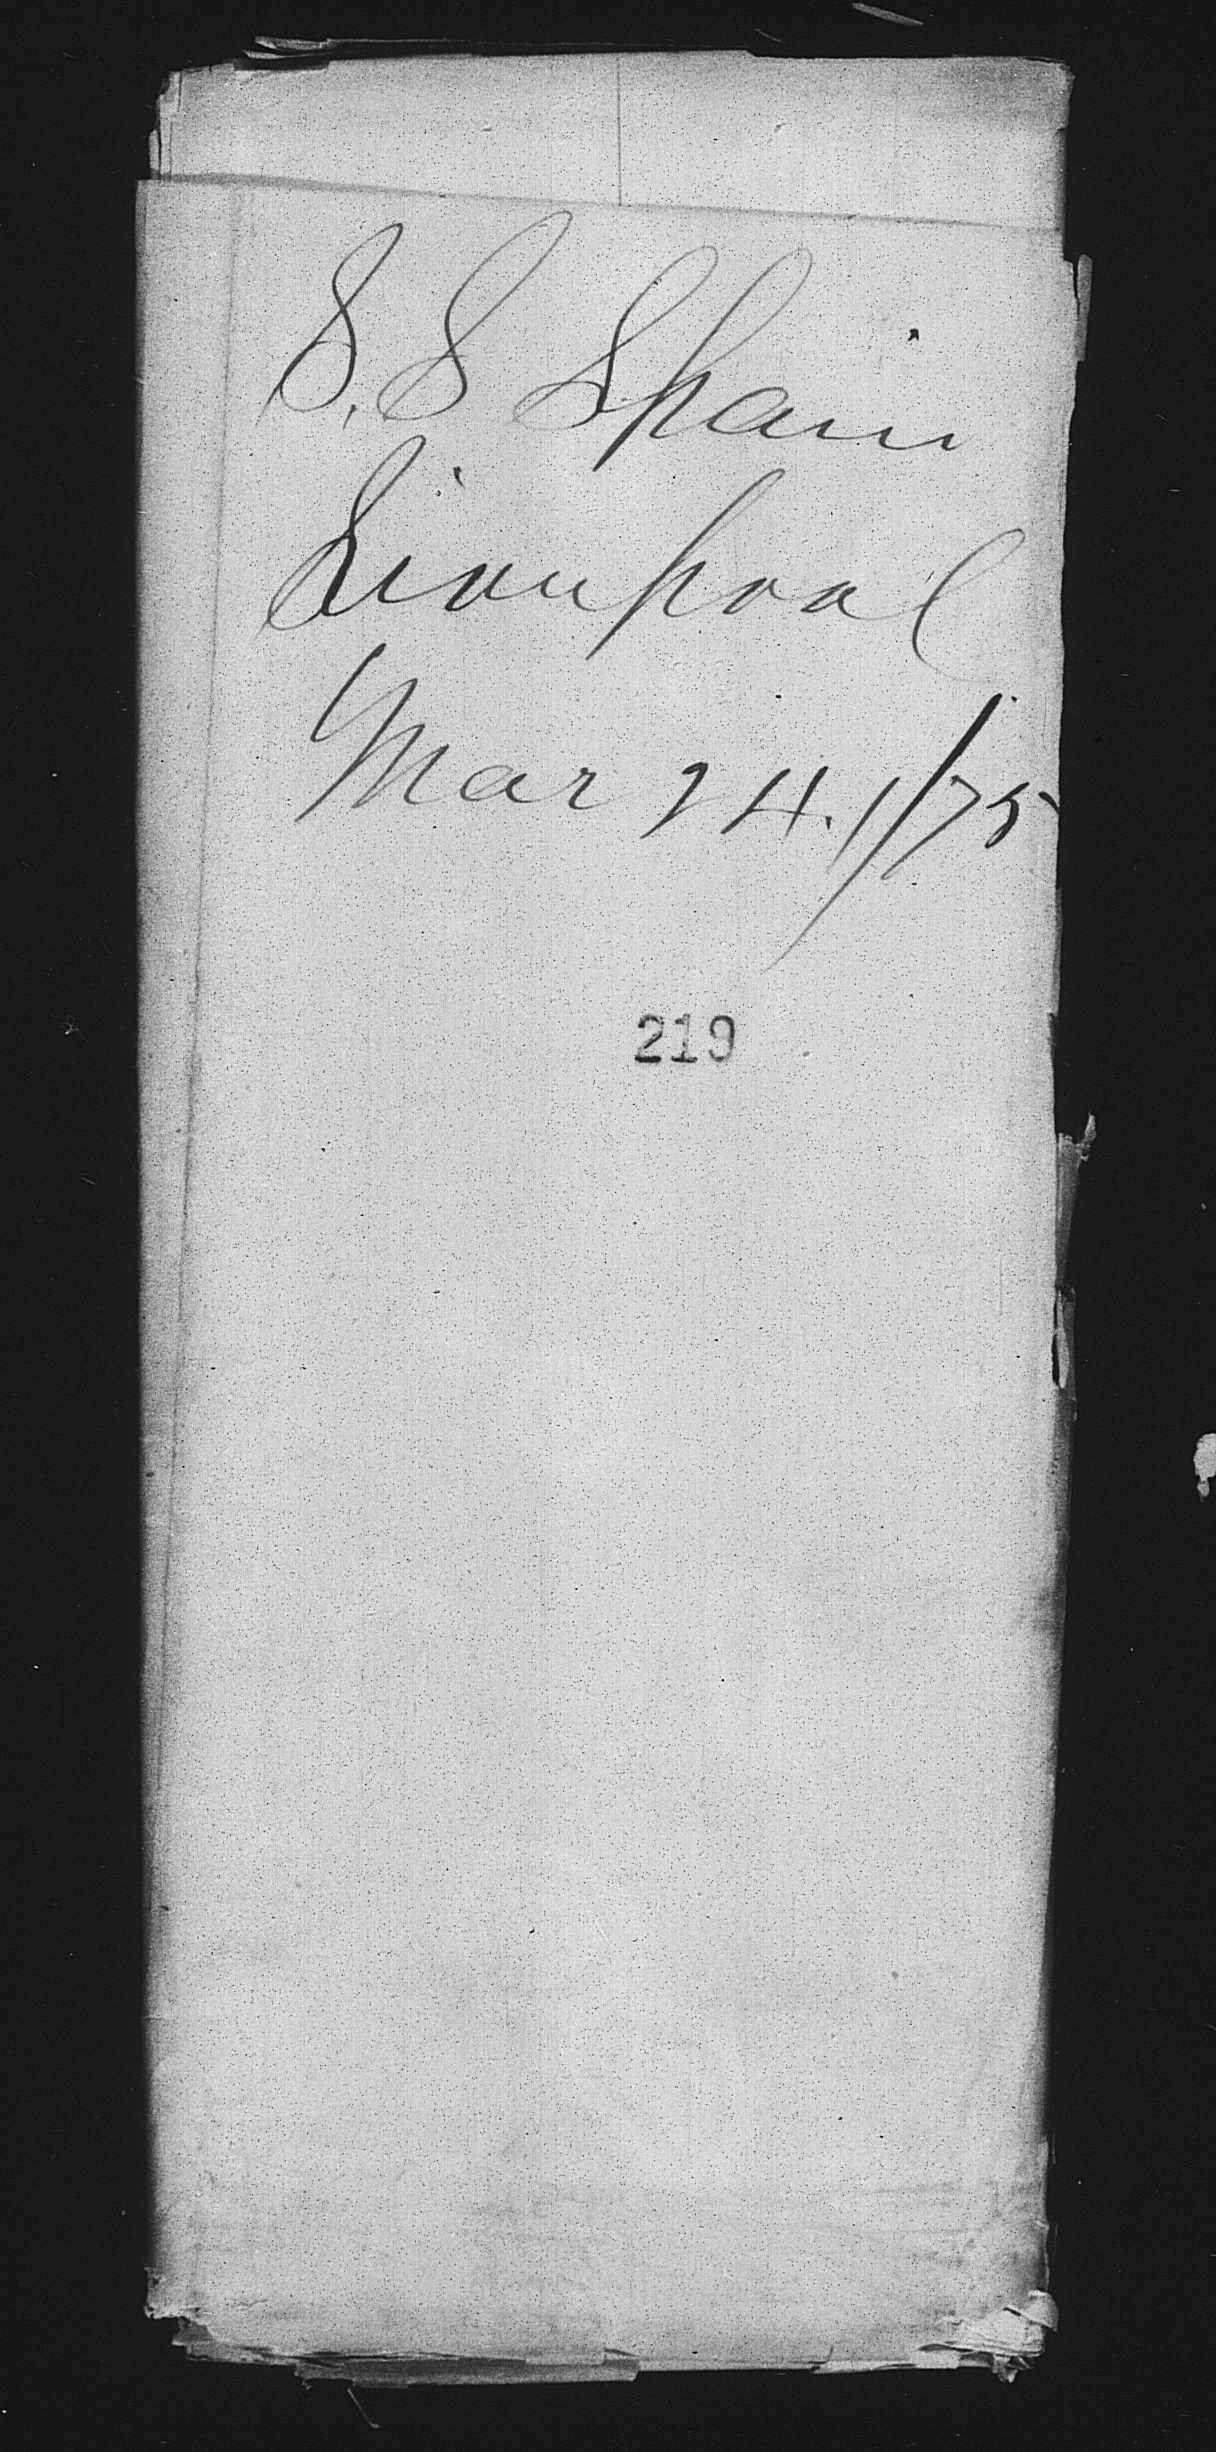 S. S Spain
Liverpool
Mar 24./75
219